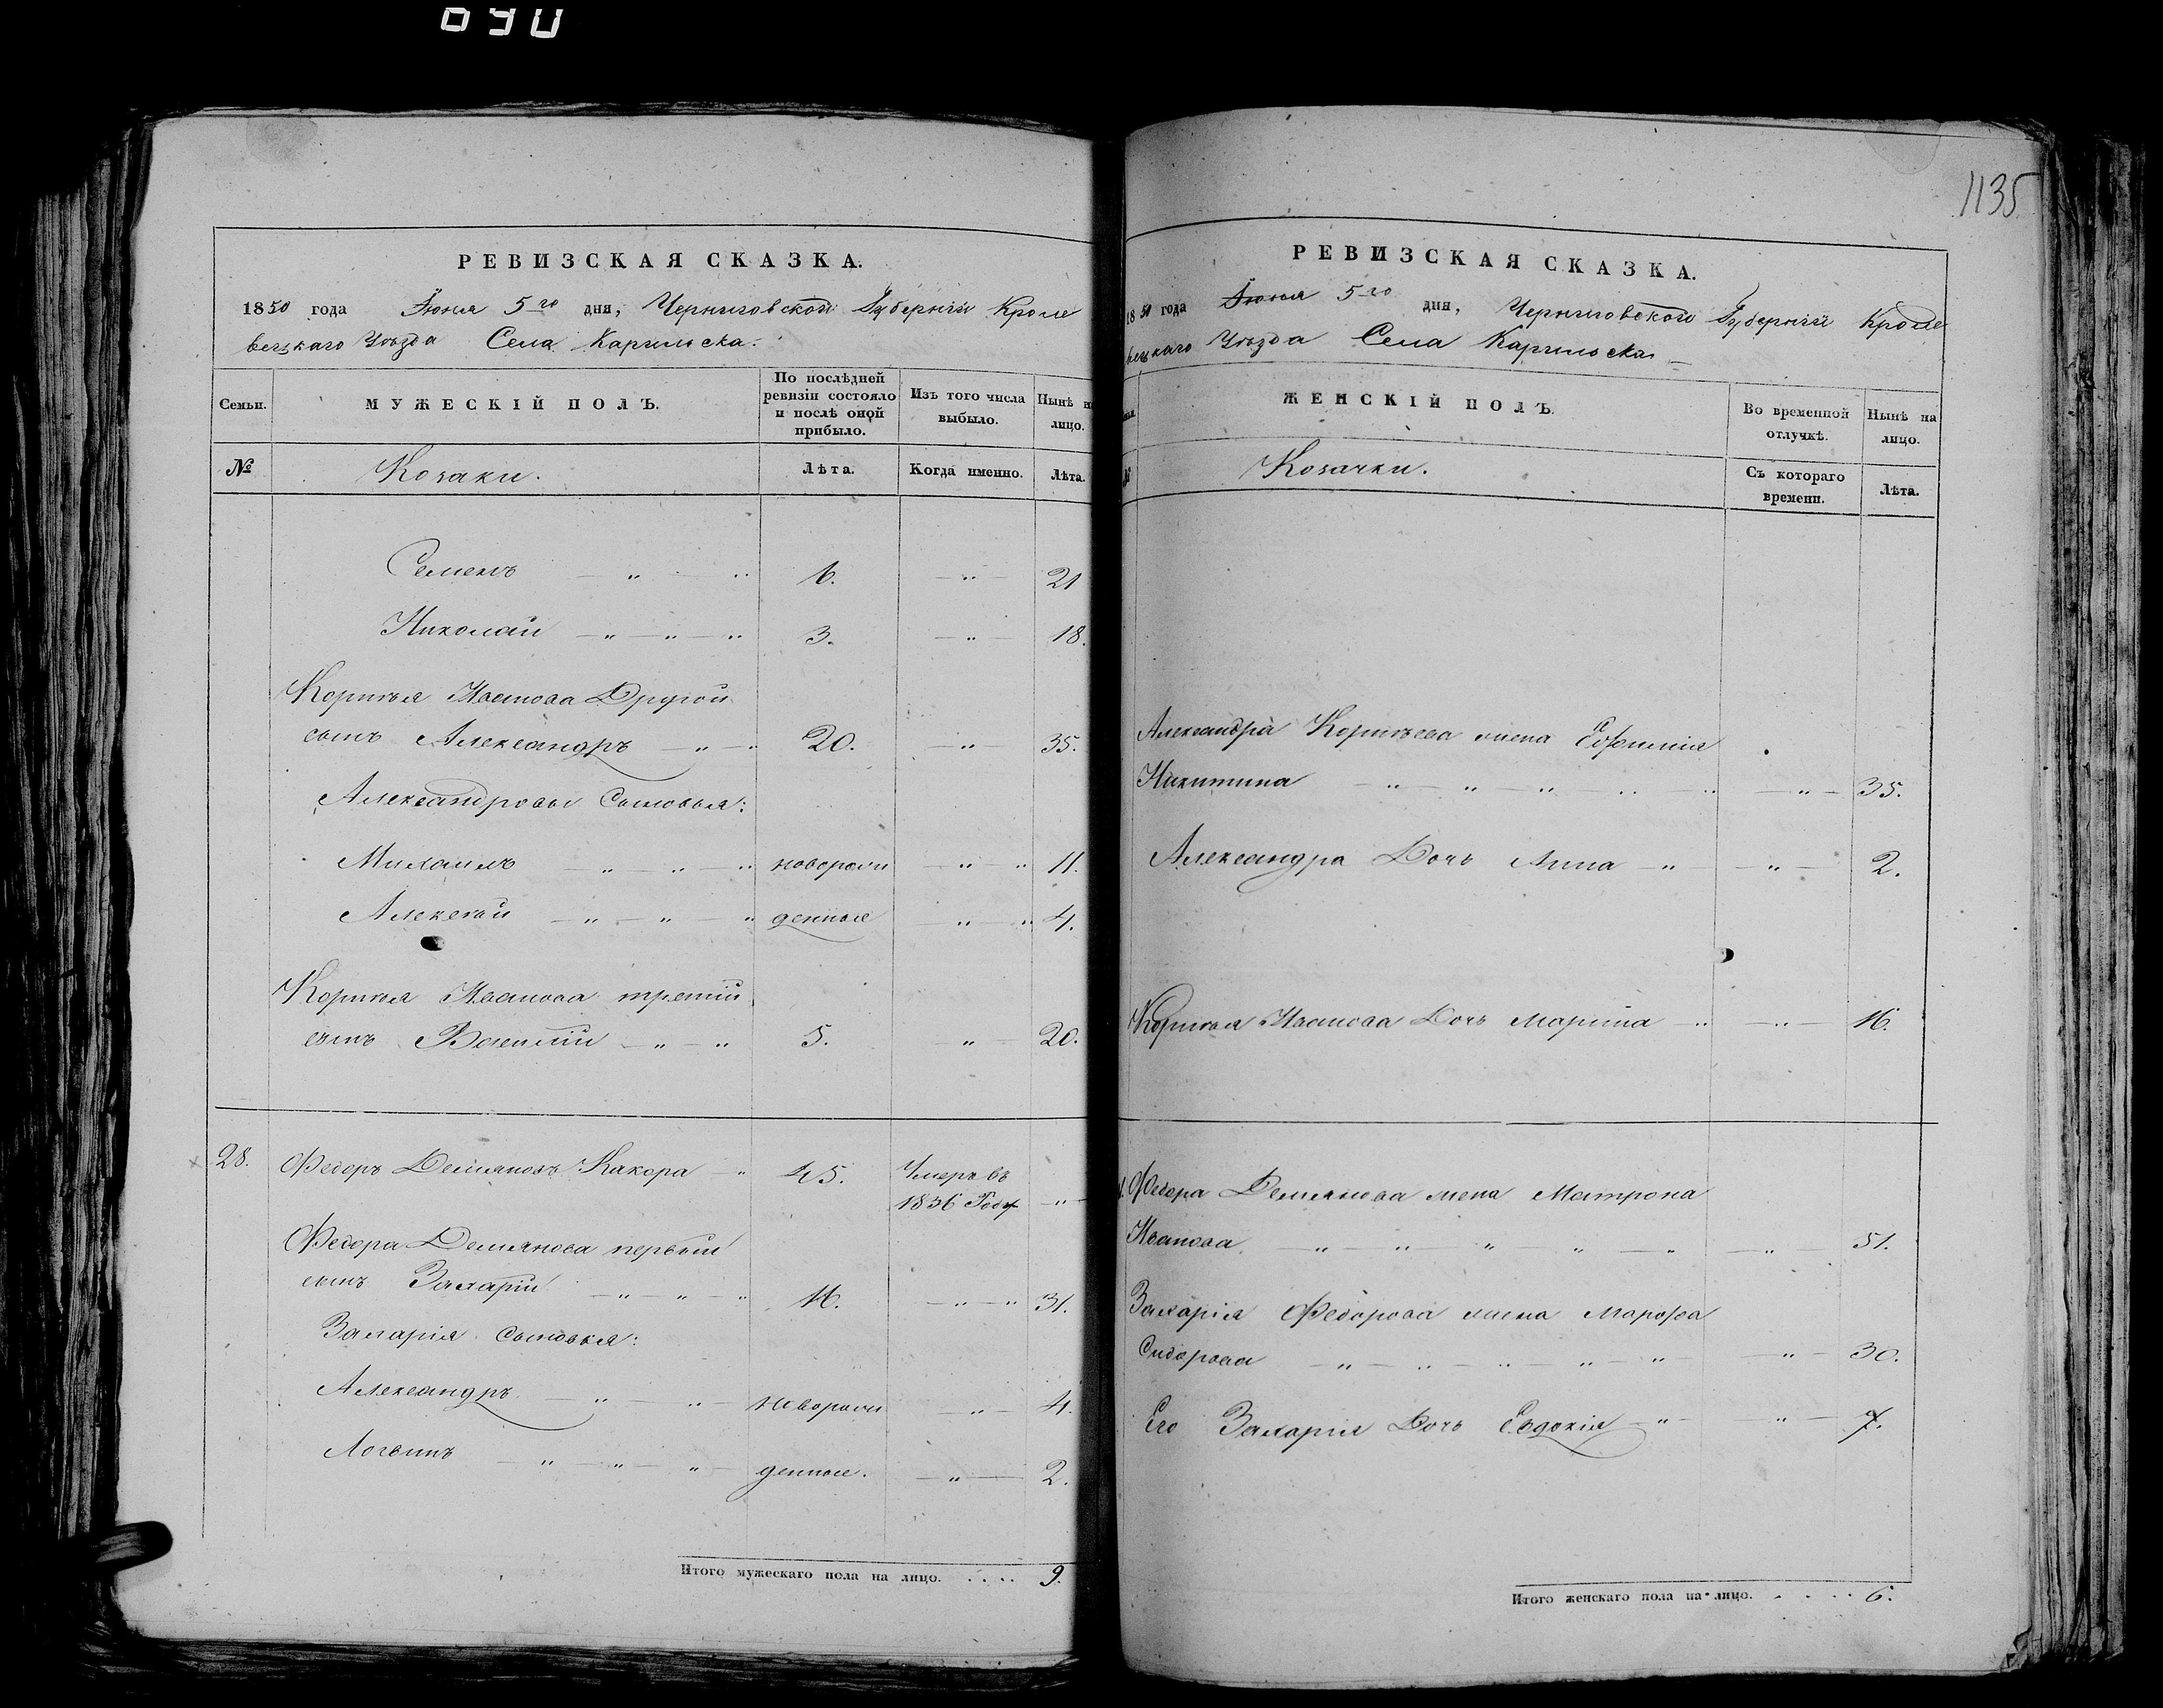 690
РЕВИЗСКАЯ СКАЗКА.
1850 года Июня 5го дня, Черниговской Губерніи Кроле
вецкаго Уѣзда Села Каричьска.
Семьи. МУЖЕСКІЙ ПОЛЪ. По послѣдней ревизіи состояло и послѣ оной прибыло. Изъ того числа выбыло. Нынѣ на лицо.
№ Козаки. Лѣта. Когда именно. Лѣта.
Семенъ — " — " 6. — " — 21
Николай — " — " — " 3. — " — 18.
Корнѣя Иванова Другой
сынъ Александръ — " — " 20. — " — 35.
Александровы Сыновья:
Михаилъ — " — " — " новорож — " — " 11.
Алексѣй — " — " — " денные — " — " 4.
Корнѣя Иванова третій
сынъ Василій — " — " 5. " — 20.
28. Федоръ Демьяновъ Какора — " 45. Умеръ въ
1836 Году — " —
Федора Демьянова первый
сынъ Захарій — " — " — " 16. — " — " 31.
Захарія Сыновья:
Александръ — " — " новорож — " — 4.
Логвинъ — " — " — " — денные. — " — 2.
Итого мужескаго пола на лицо. . . . . 9.
1135
РЕВИЗСКАЯ СКАЗКА.
1850 года Июня 5го дня, Черниговской Губерніи Кроле
вецкаго Уѣзда Села Каричьска
ЖЕНСКІЙ ПОЛЪ. Во временной отлучкѣ. Нынѣ на лицо.
№ Козачки. Съ котораго времени. Лѣта.
Александра Корнѣева жена Евфимія
Никитина — " — " — " — " — " — " — 35.
Александра Дочь Анна — " — — " — 2.
Корнѣя Иванова Дочь Марина — " — " — 16.
Федора Демьянова жена Матрона
Иванова — " — " — " — " — " — " — 51.
Захарія Федорова жена Марфа
Сидорова — " — " — " — " — " — " — 30.
Его Захарія Дочь Евдокія — " — — " — 7.
Итого женскаго пола на лицо. . . . . 6.